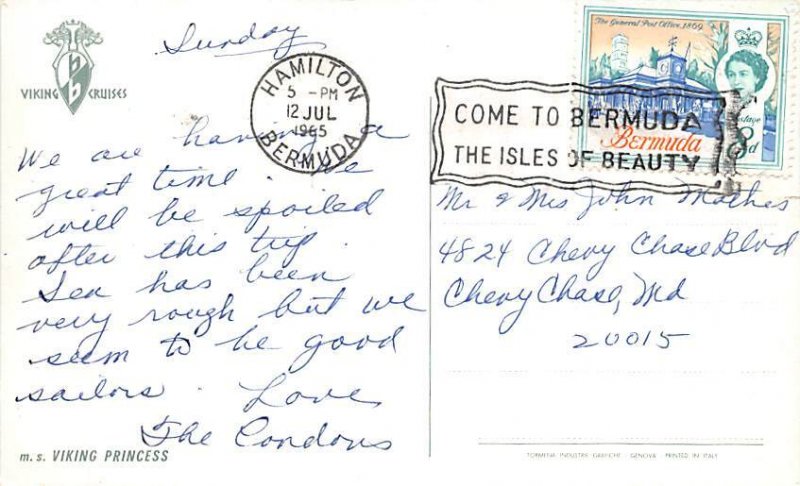 VIKING CRUISES
Sunday
HAMILTON
5 - PM
12 JUL
1965
BERMUDA
We are having a
great time. We
will be spoiled
after this trip.
Sea has been
very rough but we
seem to be good
sailors. Love,
The Condons
m.s. VIKING PRINCESS
The General Post Office, 1869
Postage
Bermuda
8d
COME TO BERMUDA
THE ISLES OF BEAUTY
Mr & Mrs John Mathes
4824 Chevy Chase Blvd
Chevy Chase, Md
20015
TORMENA INDUSTRIE GRAFICHE - GENOVA - PRINTED IN ITALY